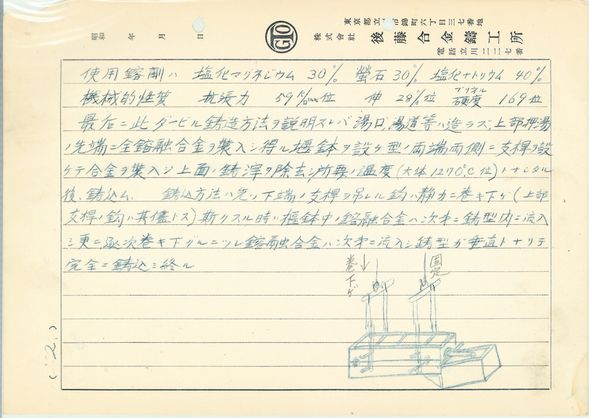 東京都立川市錦町六丁目三七番地
株式會社 後藤合金鑄工所
電話立川二二二七番
昭和 年 月 日
使用鎔剤ハ 塩化マグネシウム 30% 螢石30% 塩化ナトリウム 40%
機械的性質 抗張力 59 K/mm²位 伸 28%位 ブリネル硬度 169位
最后ニ此ダービル鋳造方法ヲ説明スレバ湯口、湯道等ハ造ラズ、上部押湯
ノ先端ニ全鎔融合金ヲ装入シ得ル堰鉢ヲ設ケ型ノ両端両側ニ支桿ヲ設
ケテ合金ヲ装入シ上面ノ鋳滓ヲ除去シ所要ノ温度(大体1270°C位)トナシタル
後、鋳込ム。 鋳込方法ハ先ヅ下端ノ支桿ヲ吊レル鈎ハ静カニ巻キ下ゲ(上部
支桿ノ鈎ハ其儘トス)斯クスル時ハ堰鉢中ノ鎔融合金ハ次第ニ鋳型内ニ流入
シ更ニ逐次巻キ下グルニツレ鎔融合金ハ次第ニ流入シ鋳型ガ垂直トナリテ
完全ニ鋳込ミ終ル
巻下ゲ
固定
(2.)